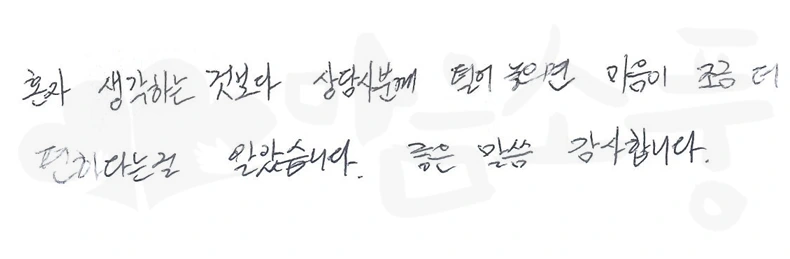 혼자 생각하는 것보다 상담사분께 털어 놓으면 마음이 조금 더
편하다는걸 알았습니다. 좋은 말씀 감사합니다.
마음소풍